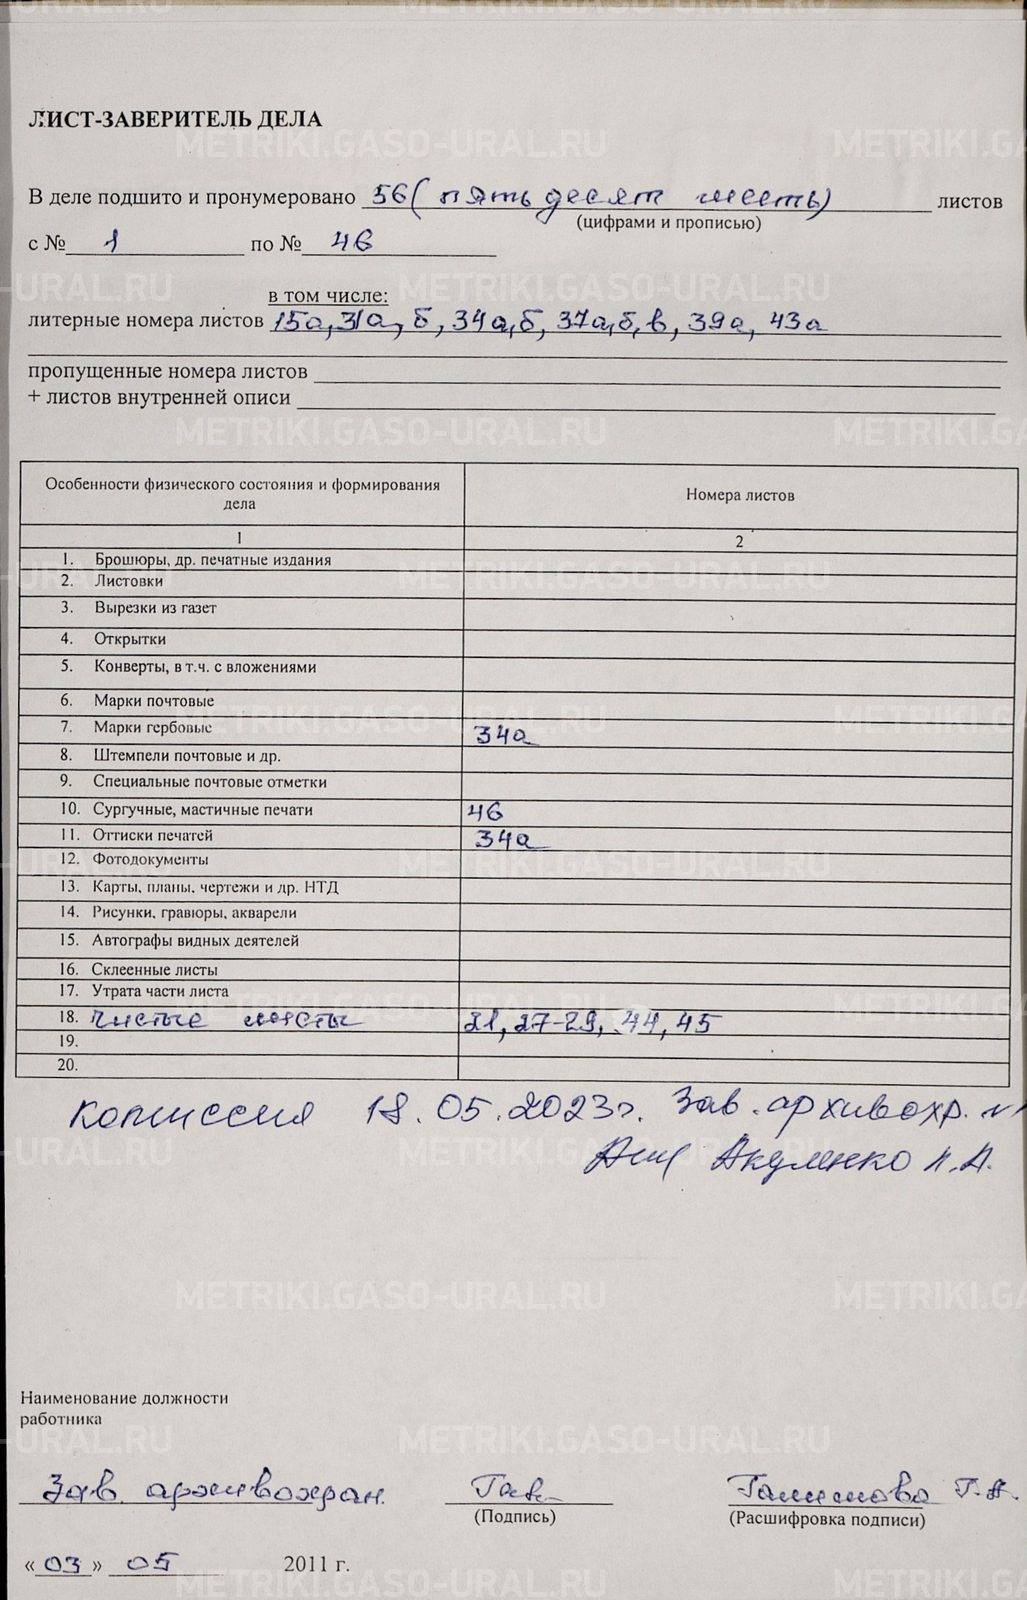 ЛИСТ-ЗАВЕРИТЕЛЬ ДЕЛА
В деле подшито и пронумеровано 56 (пятьдесят шесть) листов
(цифрами и прописью)
с № 1 по № 46
в том числе:
литерные номера листов 15а, 31а, б, 34а, б, 37а, б, в, 39а, 43а
пропущенные номера листов
+ листов внутренней описи
Особенности физического состояния и формирования дела Номера листов
1 2
1. Брошюры, др. печатные издания
2. Листовки
3. Вырезки из газет
4. Открытки
5. Конверты, в т.ч. с вложениями
6. Марки почтовые
7. Марки гербовые 34а
8. Штемпели почтовые и др.
9. Специальные почтовые отметки
10. Сургучные, мастичные печати 46
11. Оттиски печатей 34а
12. Фотодокументы
13. Карты, планы, чертежи и др. НТД
14. Рисунки, гравюры, акварели
15. Автографы видных деятелей
16. Склеенные листы
17. Утрата части листа
18. Чистые листы 21, 27-29, 44, 45
19.
20.
Комиссия 18.05.2023г. Зав. архивохр.
Акуленко А.А.
Наименование должности
работника
Зав. архивохран.
(Подпись) (Расшифровка подписи)
«03» 05 2011 г.
METRIKI.GASO-URAL.RU